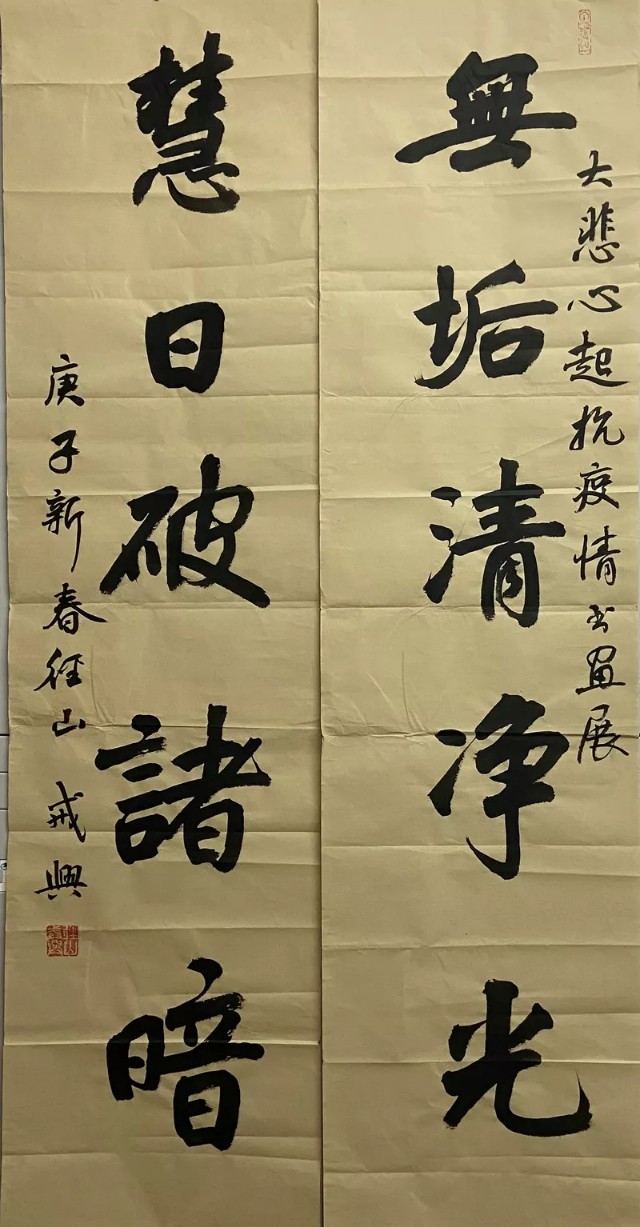 大悲心起抗疫情书画展
無垢清净光
慧日破諸暗
庚子新春径山戒興